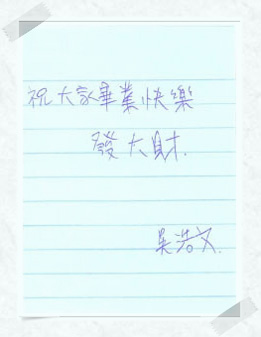 祝大家畢業快樂
發大財.
吳若文.